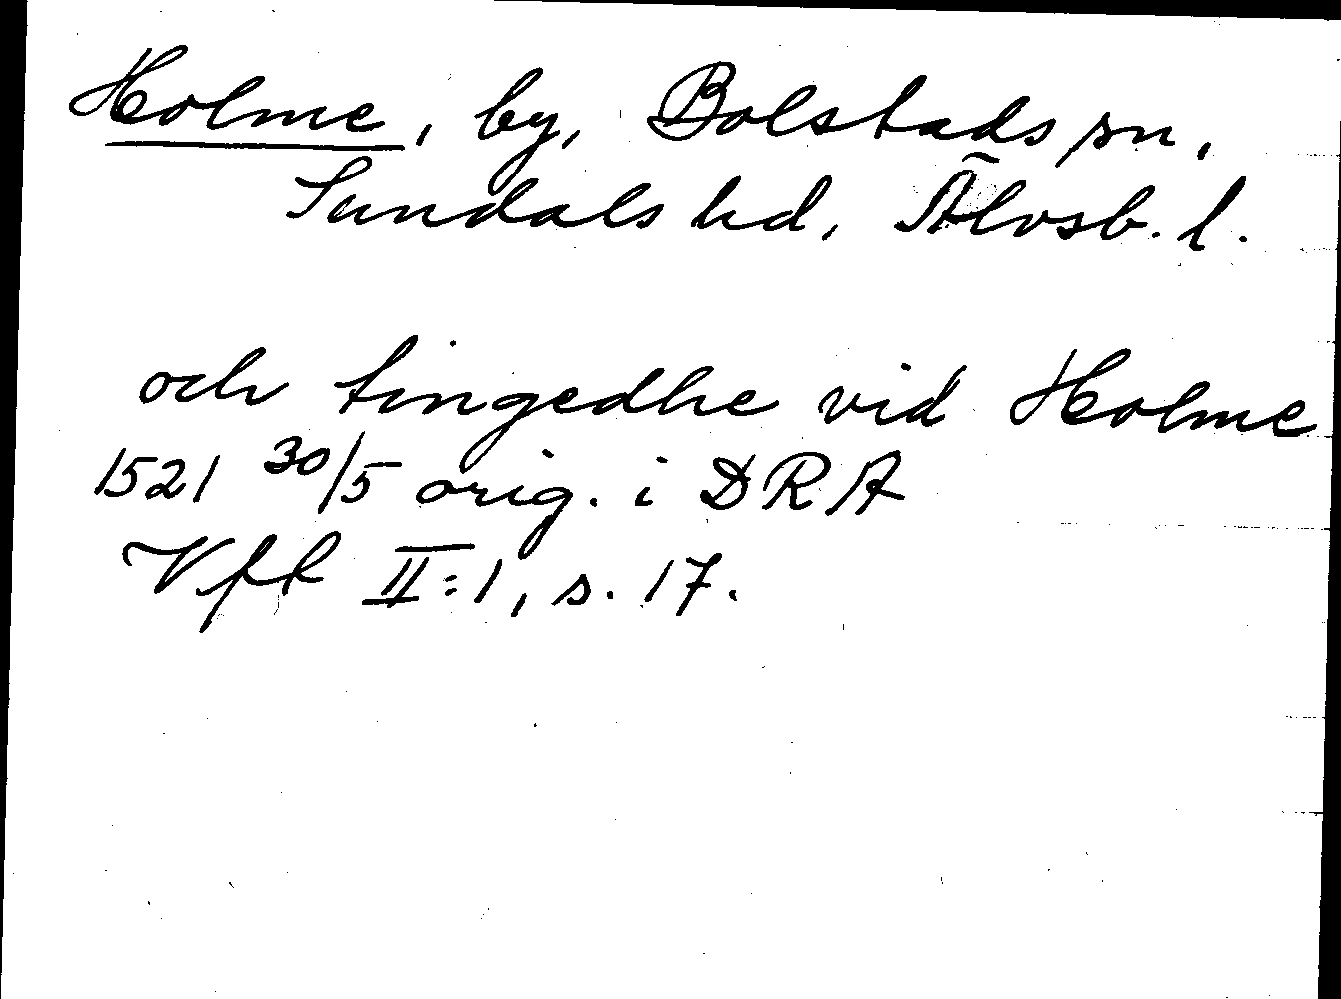 Holme, by, Bolstads sn,
Sundals hd, Älvsb. l.
och tingedhe vid Holme
1521 30/5 orig. i DRA
Vfl II:1, s. 17.